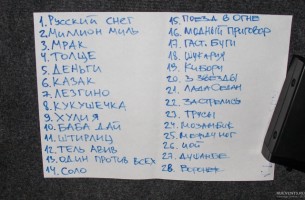 1. Русский снег
2. Миллион миль
3. Мрак
4. Толще
5. Деньги
6. Казак
7. Лезгино
8. Кукушечка
9. Хули я
10. Баба дай
11. Штирлиц
12. Тель Авив
13. Один против всех
14. Соло
15. Поезд в огне
16. Модный приговор
17. Гаст. Буги
18. Шукария
19. Киборг
20. 3 звезды
21. Лада Седан
22. Застрелись
23. Трусы
24. Мозамбик
25. Между ног
26. Цой
27. Душанбе
28. Воронеж